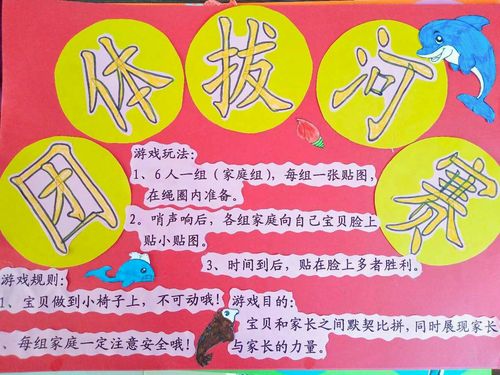 团体拔河赛
游戏玩法:
1、6人一组（家庭组），每组一张贴图，
在绳圈内准备。
2、哨声响后，各组家庭向自己宝贝脸上
贴小贴图。
3、时间到后，贴在脸上多者胜利。
游戏规则:
1、宝贝做到小椅子上，不可动哦!
、每组家庭一定注意安全哦!
游戏目的:
宝贝和家长之间默契比拼,同时展现家长
与家长的力量。